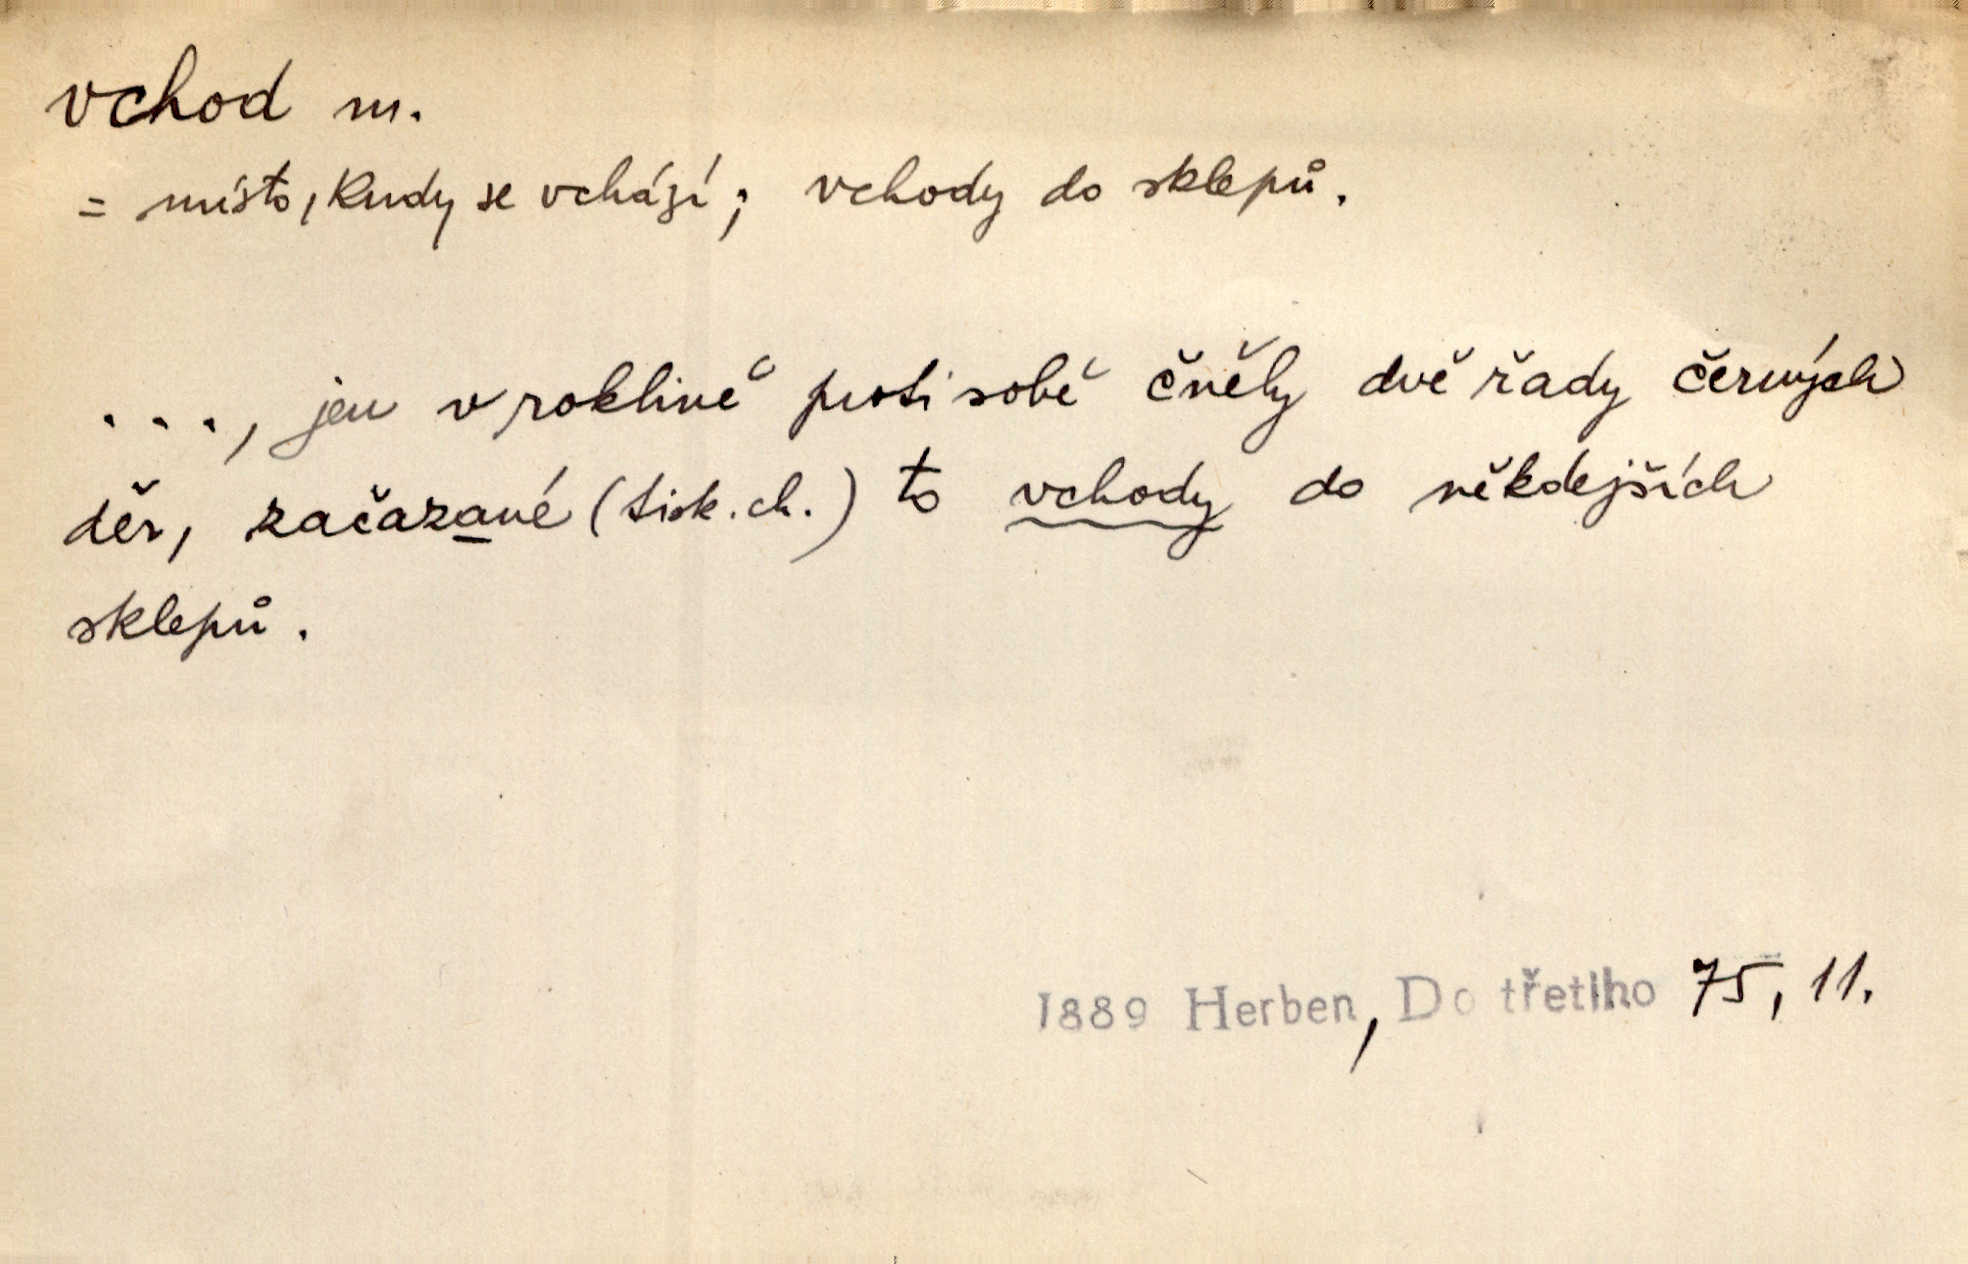 vchod m.
= místo, kudy se vchází; vchody do sklepů.
..., jen v roklině proti sobě čněly dvě řady černých
děr, začazané (tisk. ch.) to vchody do někdejších
sklepů.
1889 Herben, Do třetího 75, 11.